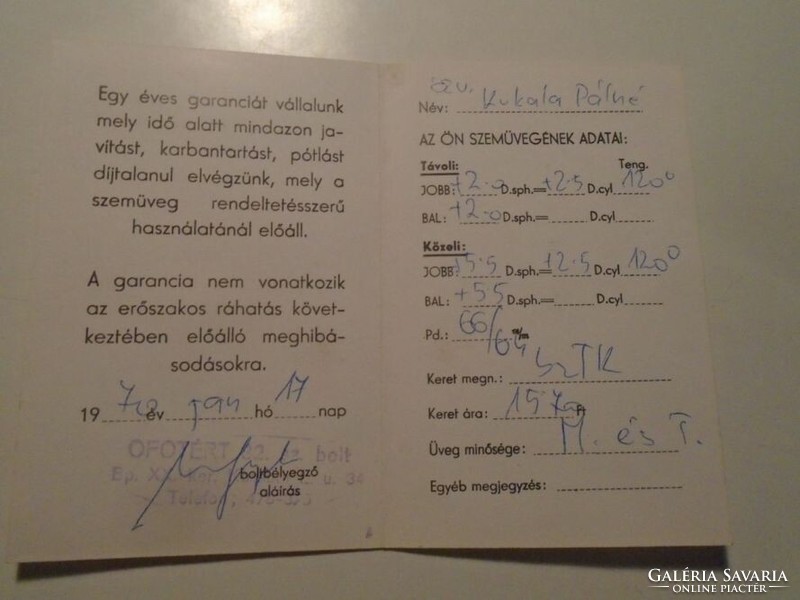 Egy éves garanciát vállalunk
mely idő alatt mindazon ja-
vítást, karbantartást, pótlást
díjtalanul elvégzünk, mely a
szemüveg rendeltetésszerű
használatánál előáll.
A garancia nem vonatkozik
az erőszakos ráhatás követ-
keztében előálló meghibá-
sodásokra.
1970 év jan hó 17 nap
OFOTÉRT bolt
boltbélyegző
aláírás
özv.
Név: Kukala Pálné
AZ ÖN SZEMÜVEGÉNEK ADATAI:
Távoli: Teng.
JOBB: +2.0 D.sph.= +2.5 D.cyl 120°
BAL: +2.0 D.sph.= D.cyl
Közeli:
JOBB: +5.5 D.sph.= +2.5 D.cyl 120°
BAL: +5.5 D.sph.= D.cyl
Pd.: 66/64 m/m
Keret megn.: SZTK
Keret ára: Ft
Üveg minősége: M. és T.
Egyéb megjegyzés:
GALÉRIA SAVARIA
ONLINE PIACTÉR